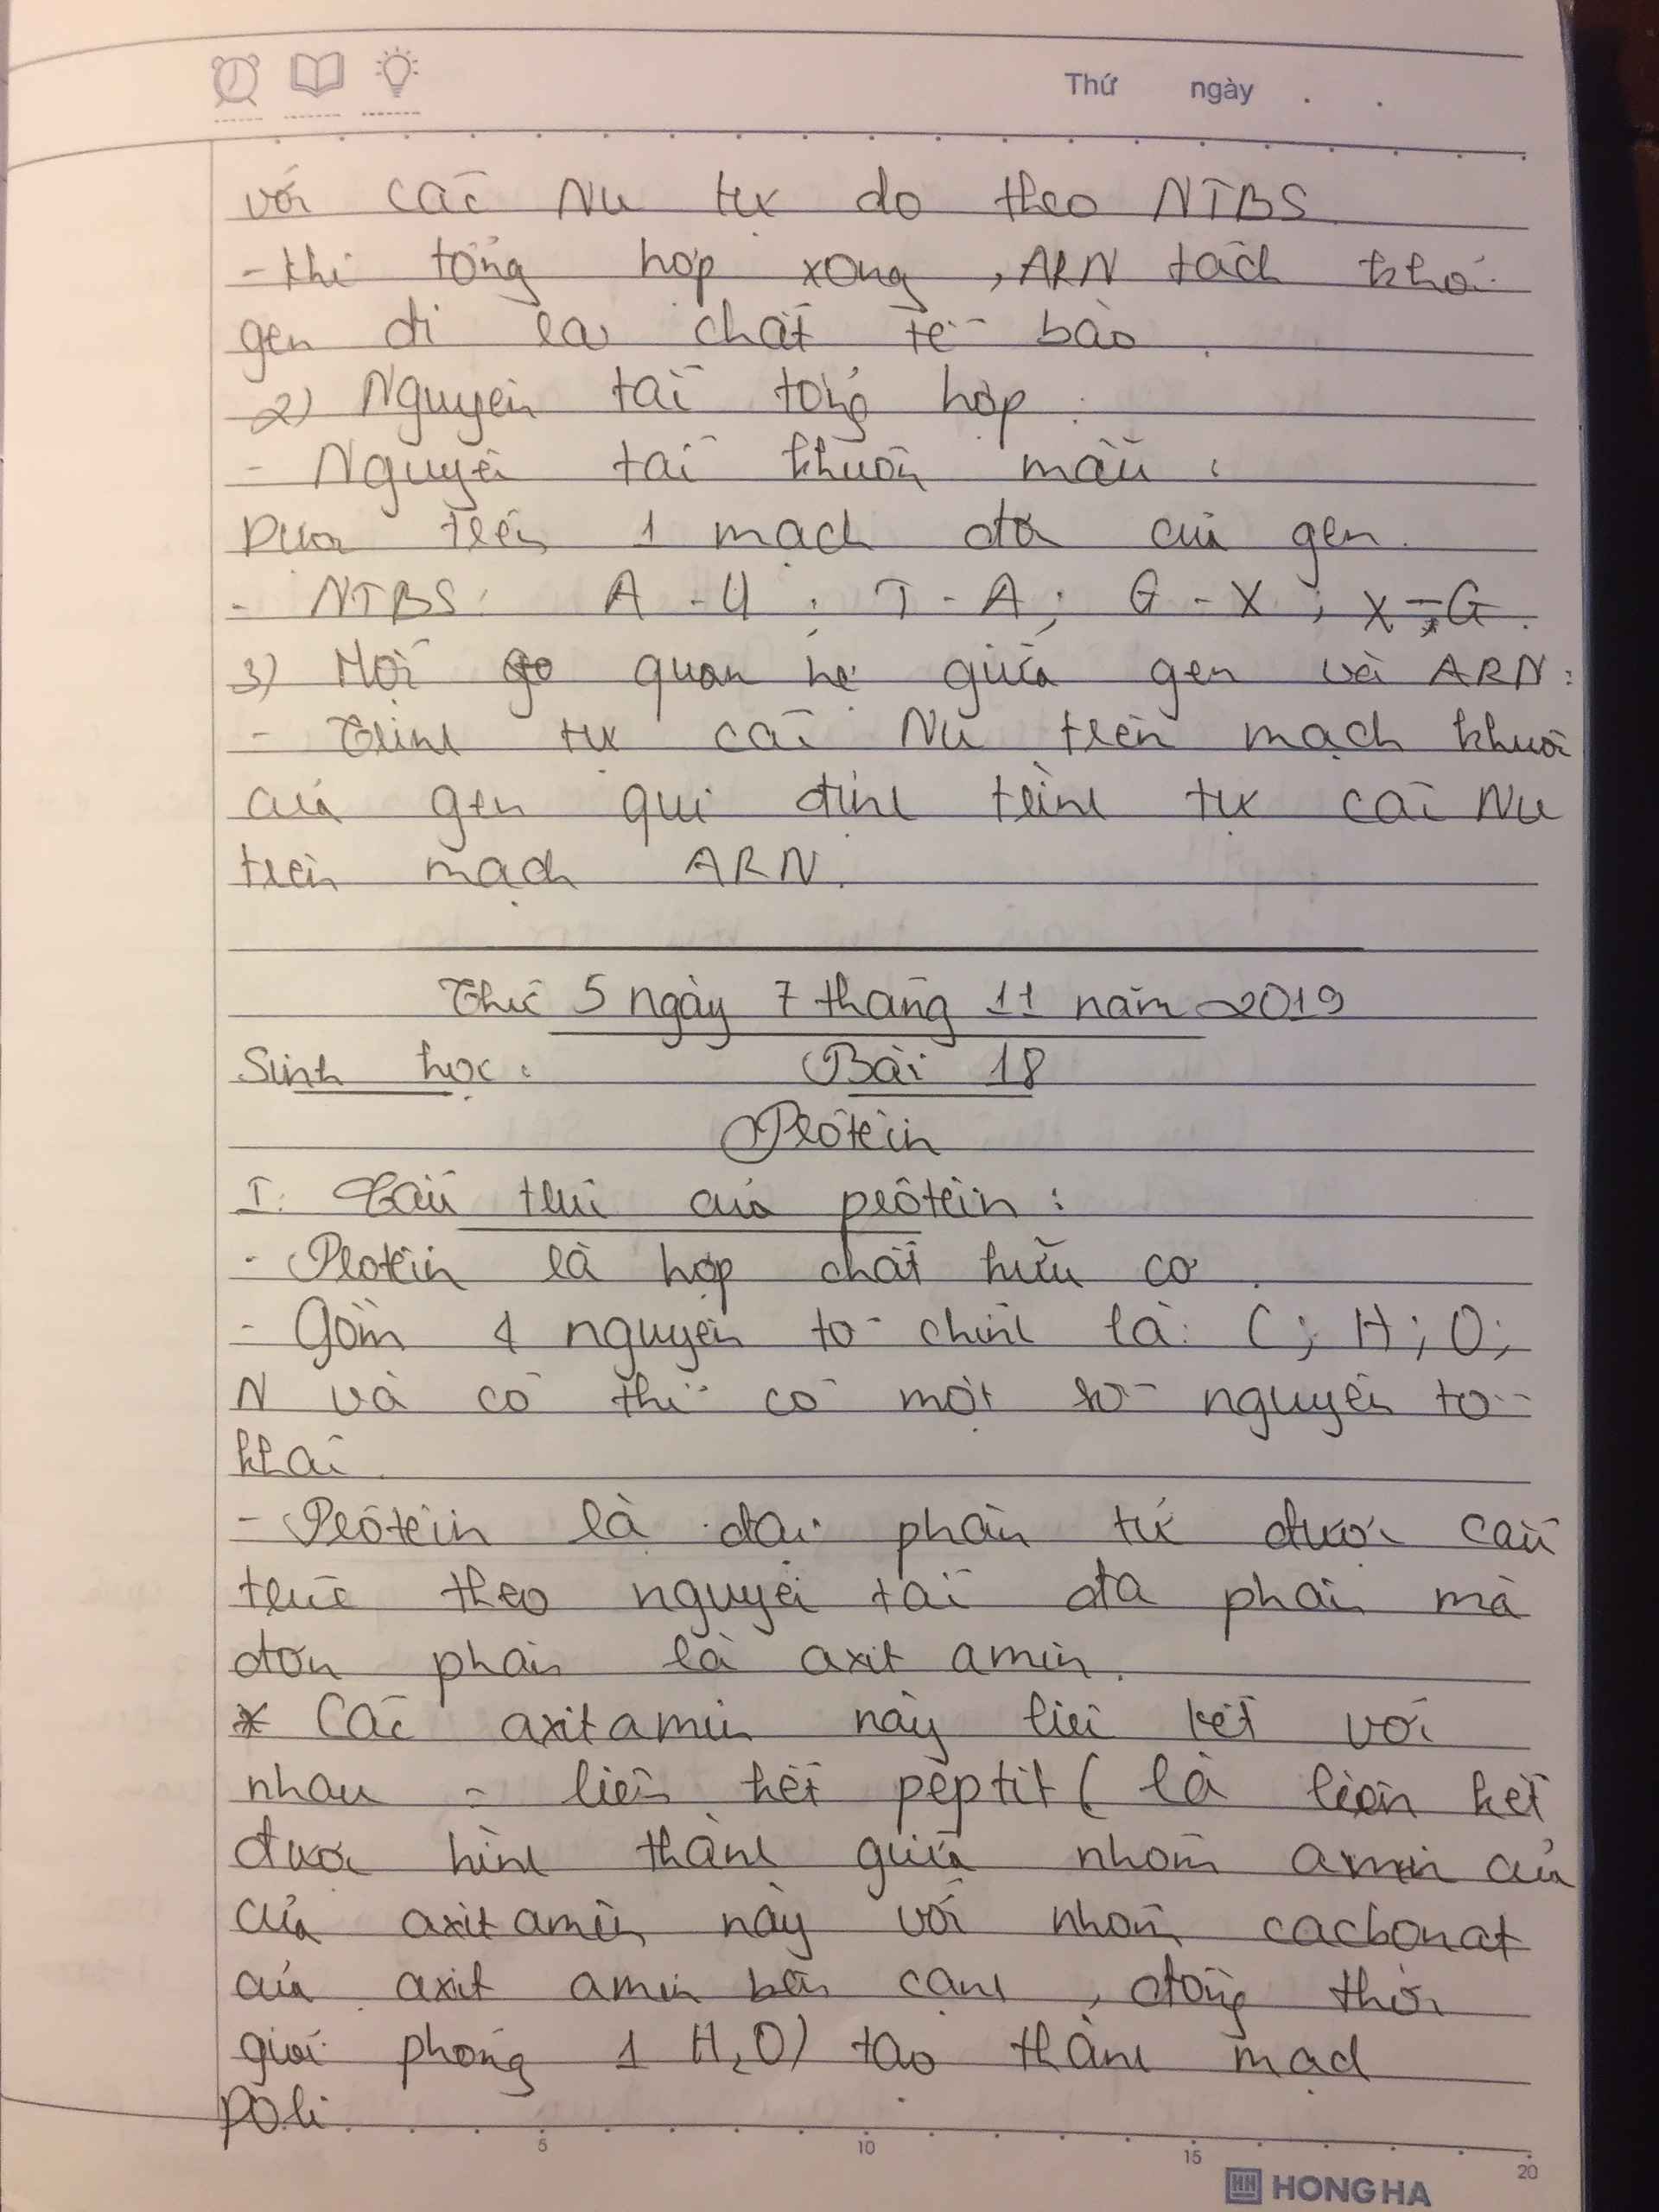 Thứ ngày . .
với các Nu tự do theo NTBS
- khi tổng hợp xong, ARN tách khỏi
gen đi ra chất tế bào.
2) Nguyên tắc tổng hợp:
- Nguyên tắc khuôn mẫu:
Dựa trên 1 mạch đơn của gen.
- NTBS: A - U; T - A; G - X; X - G.
3) Mối quan hệ giữa gen và ARN:
- Trình tự các Nu trên mạch khuôn
của gen qui định trình tự các Nu
trên mạch ARN.
Thứ 5 ngày 7 tháng 11 năm 2019
Sinh học: Bài 18
Prôtêin
I. Cấu trúc của prôtêin:
- Protein là hợp chất hữu cơ.
- Gồm 4 nguyên tố chính là: C; H; O;
N và có thể có một số nguyên tố
khác.
- Prôtêin là đại phân tử được cấu
trúc theo nguyên tắc đa phân mà
đơn phân là axit amin.
* Các axit amin này liên kết với
nhau = liên kết peptit ( là liên kết
được hình thành giữa nhóm amin của
của axit amin này với nhóm cacbonat
của axit amin bên cạnh, đồng thời
giải phóng 1 H₂O) tạo thành mạch
poli.
5 10 15 20
HONG HA